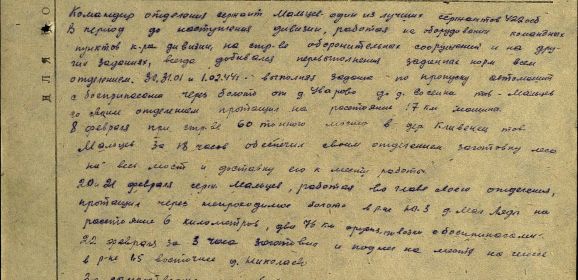 Командир отделения сержант Мальцев один из лучших сержантов 422 осб
В период до наступления дивизии, работая на оборудовании командных
пунктов к-ра дивизии, на стр-ве оборонительных сооружений и на дру-
гих заданиях, всегда добивался перевыполнения заданных норм всем
отделением. 30, 31.01 и 1.02.44г - выполняя задание по пропуску автомашин
с боеприпасами через болото от д. Уварово до д. тов - Мальцев
со своим отделением протащил на расстояние 17 км машина.
8 февраля при стр-ве 60 тонного моста в дер тов
Мальцев за 18 часов обеспечил своим отделением заготовку леса
на весь мост и доставку его к месту работы
20-21 февраля серж. Мальцев, работая во главе своего отделения,
протащил через непроходимое болото в р-не д. на
расстояние 6 километров, два 76 мм орудия, повозки с боеприпасами.
22 февраля за 3 часа заготовил и поднес на
в р-не восточнее д. Николаево
За